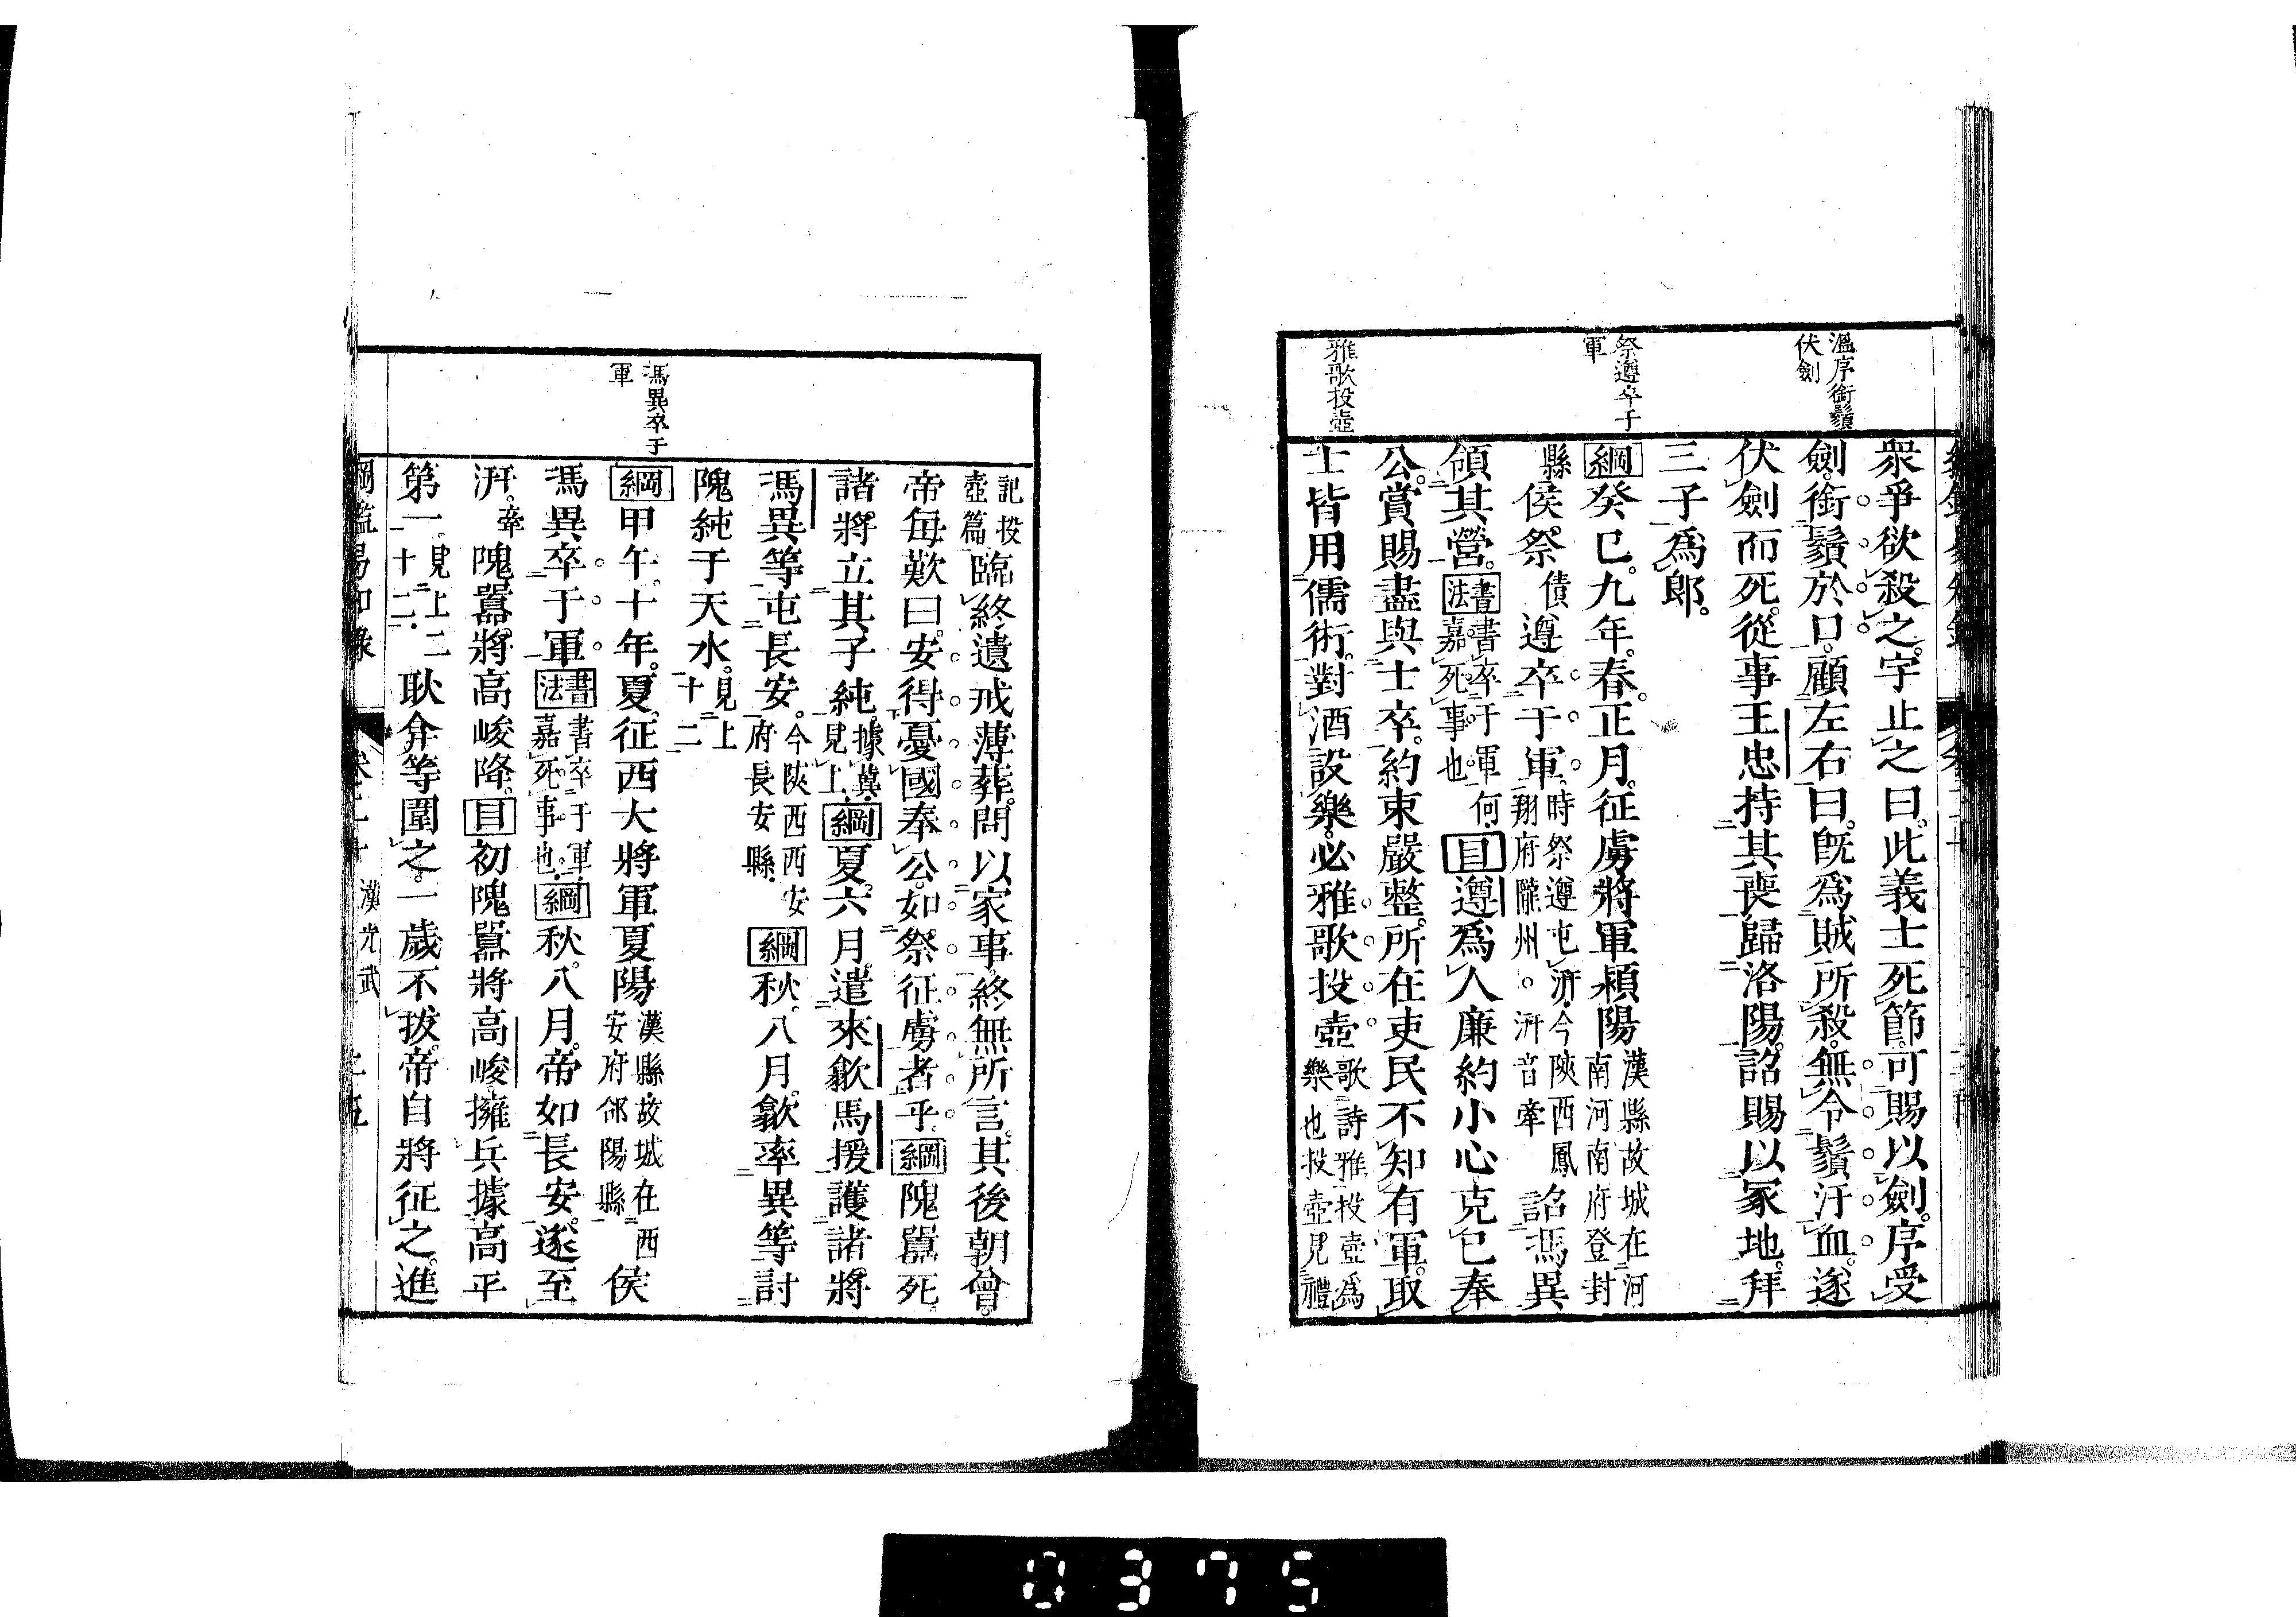 溫序銜鬚
伏劍
祭遵卒于
軍
雅歌投壺
衆爭欲殺之。宇止之曰。此義士死節。可賜以劍。序受
劍。銜鬚於口。顧左右曰。旣爲賊所殺。無令鬚汙血。遂
伏劍而死。從事王忠持其喪歸洛陽。詔賜以冢地。拜
三子爲郎。
綱癸巳。九年。春。正月。征虜將軍潁陽漢縣故城在河南河南府登封
縣侯。祭債遵卒于軍。時祭遵屯汧今陝西鳳翔府隴州。汧音牽詔馮異
領其營。書法書卒于軍何嘉死事也目遵爲人廉約小心克己奉
公。賞賜盡與士卒。約束嚴整。所在吏民不知有軍。取
士皆用儒術。對酒設樂。必雅歌投壺歌詩雅投壺爲樂也投壺見禮
馮異卒于
軍
記投壺篇臨終遺戒薄葬。問以家事。終無所言。其後朝會。
帝每歎曰。安得憂國奉公。如祭征虜者乎。綱隗囂死。
諸將立其子純。據冀見上綱夏。六月。遣來歙馬援護諸將
馮異等屯長安。今陝西西安府長安縣綱秋。八月。歙率異等討
隗純于天水。見上十二
綱甲午。十年。夏。征西大將軍夏陽漢縣故城在西安府郃陽縣侯
馮異卒于軍書法書卒于軍嘉死事也綱秋。八月。帝如長安。遂至
汧。牽隗囂將高峻降。目初隗囂將高峻。擁兵據高平
第一。見上二十二耿弇等圍之。一歲不拔。帝自將征之。進
漢光武
0375